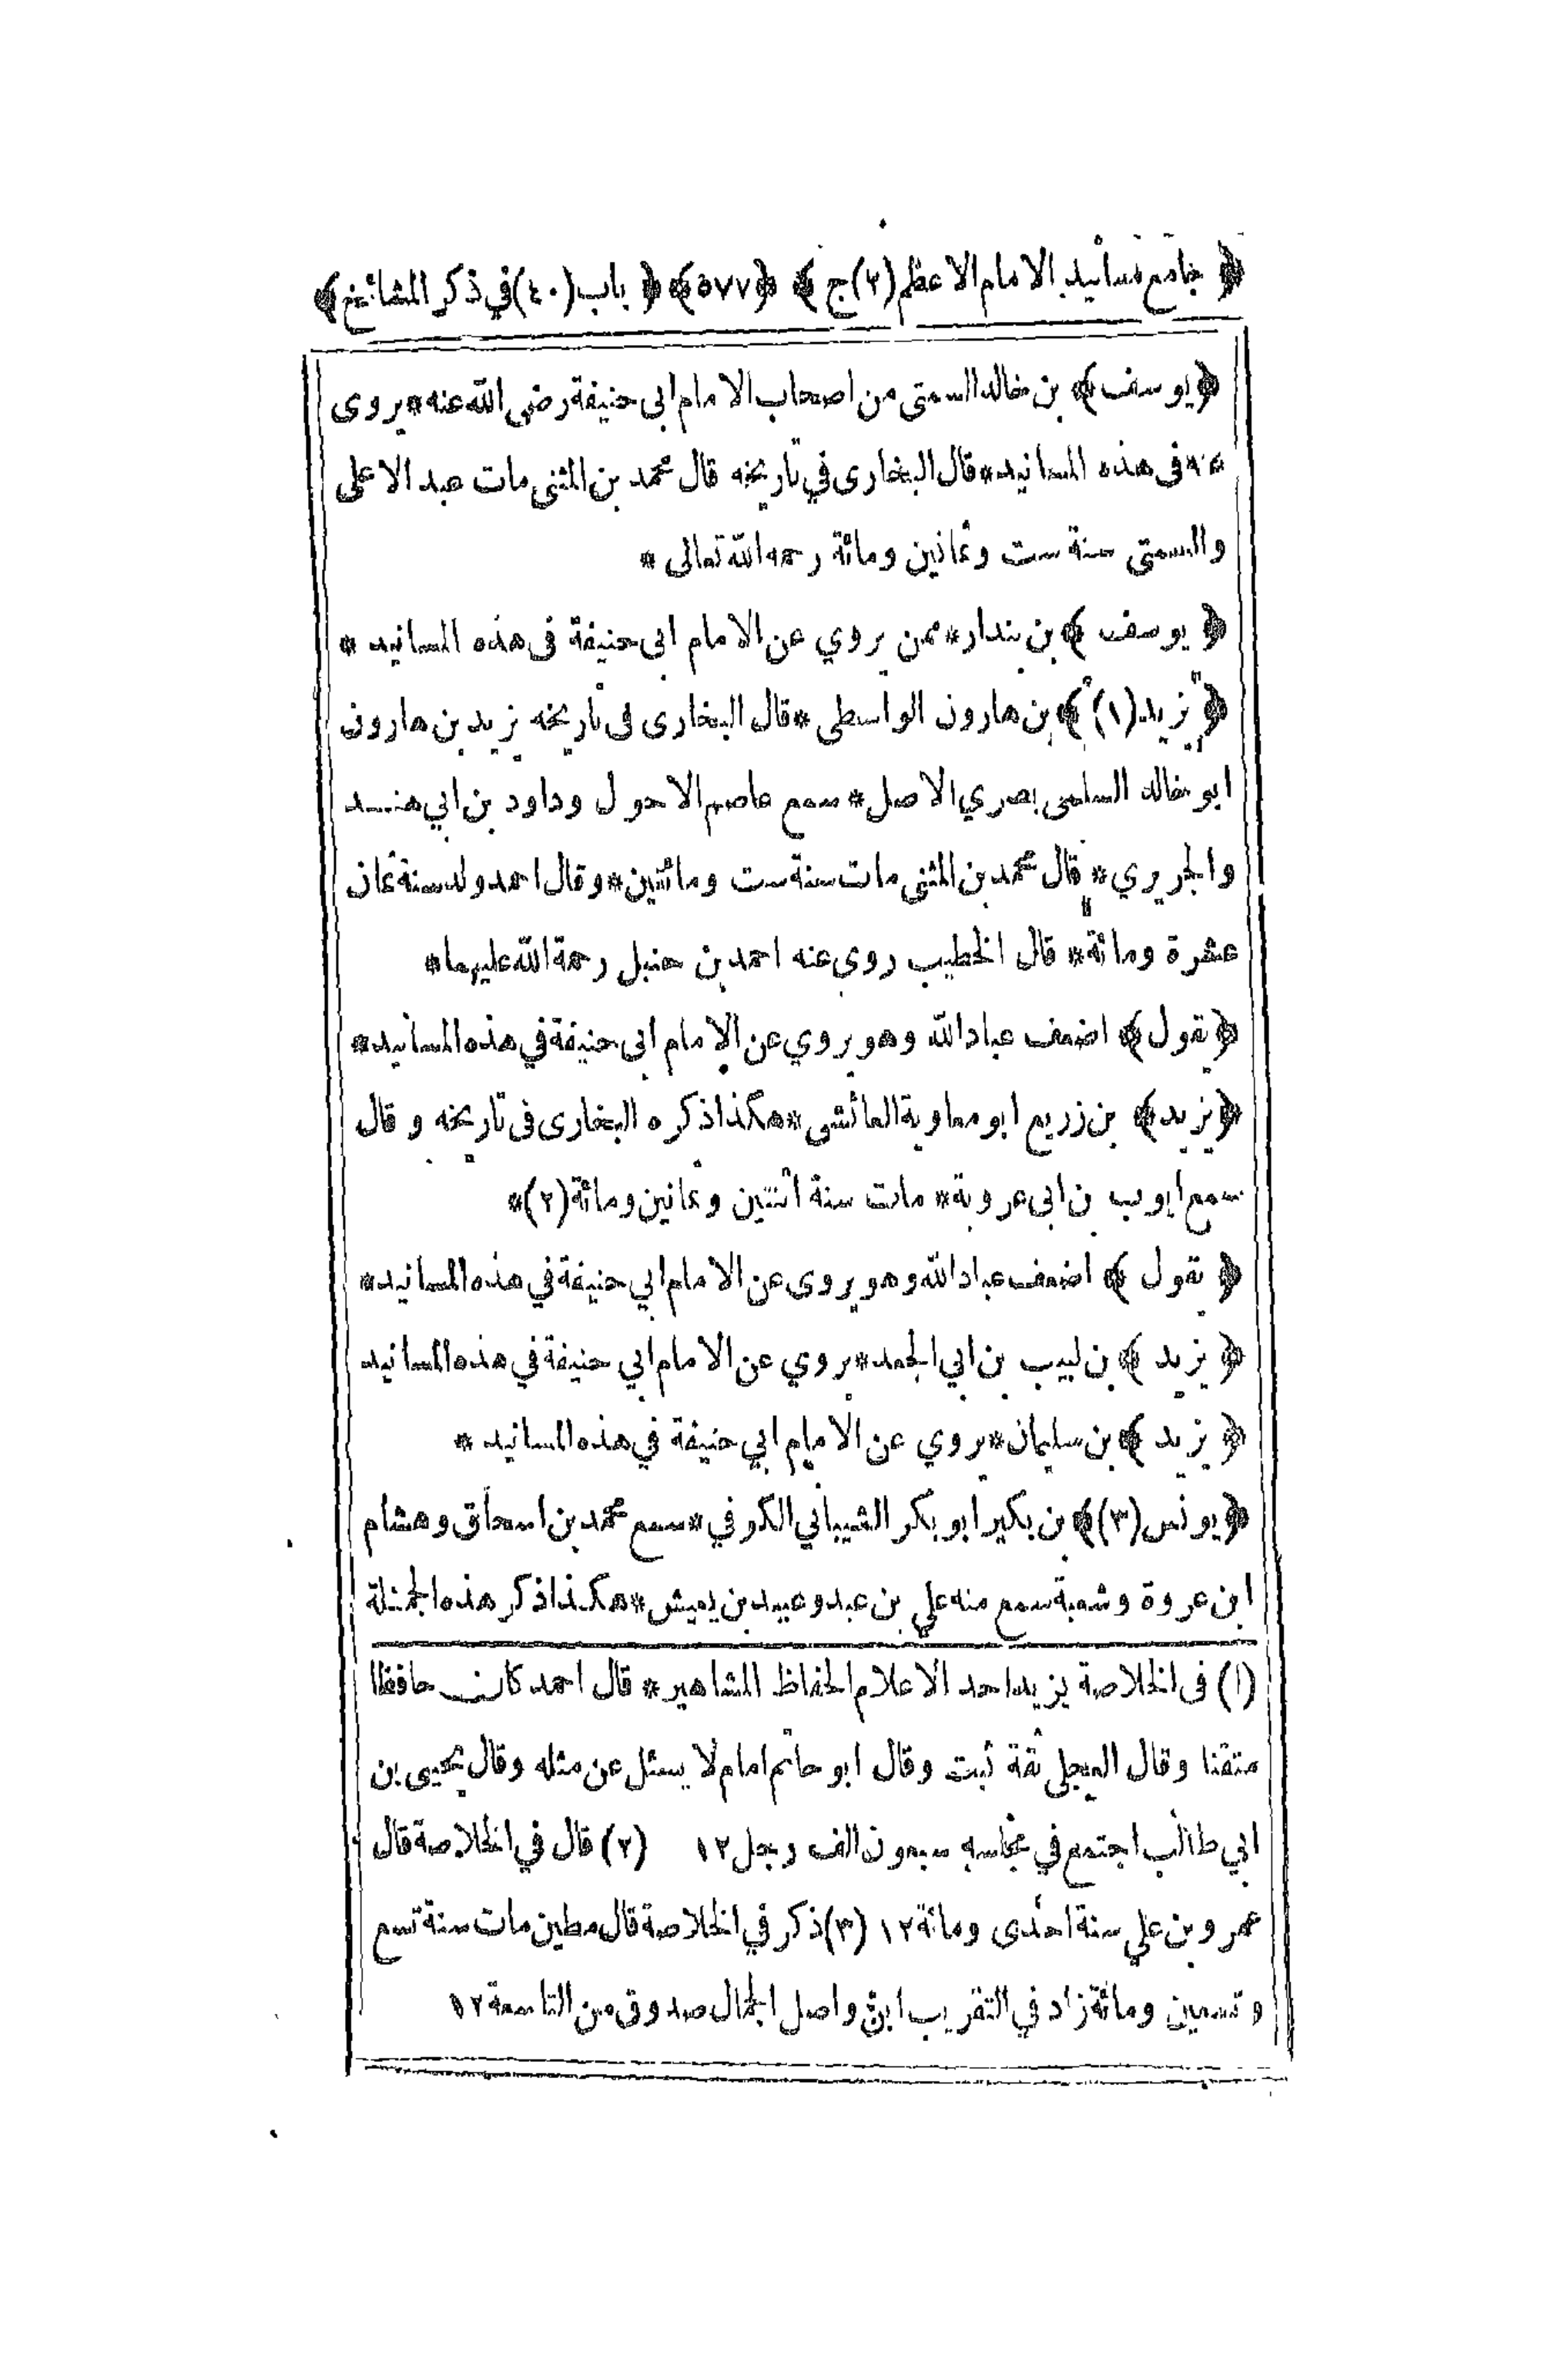 ﴿ جامع مسانيد الامام الاعظم (٢) ج ﴾ ﴿٥٧٧﴾ ﴿ باب (٤٠) في ذكر المشائخ ﴾
﴿ يوسف ﴾ بن خالد السمتى من اصحاب الامام ابى حنيفة رضى الله عنه * يروى
عنه فى هذه المسانيد * قال البخارى في تاريخه قال محمد بن المثنى مات عبد الاعلى
والسمتى سنة ست وثمانين ومائة رحمه الله تعالى *
﴿ يوسف ﴾ بن بندار * ممن يروي عن الامام ابى حنيفة فى هذه المسانيد *
﴿ يزيد (١) ﴾ بن هارون الواسطى * قال البخارى فى تاريخه يزيد بن هارون
ابو خالد السلمى بصري الاصل * سمع عاصم الاحول وداود بن ابي هنــد
والجريري * قال محمد بن المثنى مات سنة ست ومائتين * وقال احمد ولد سنة ثمان
عشرة ومائة * قال الخطيب روى عنه احمد بن حنبل رحمة الله عليهما *
﴿ يقول ﴾ اضعف عباد الله وهو يروي عن الامام ابى حنيفة في هذه المسانيد *
﴿ يزيد ﴾ بن زريع ابو معاوية العائشى * هكذا ذكره البخارى فى تاريخه و قال
سمع ايوب بن ابى عروبة * مات سنة اثنتين وثمانين ومائة (٢) *
﴿ يقول ﴾ اضعف عباد الله وهو يروى عن الامام ابي حنيفة في هذه المسانيد *
﴿ يزيد ﴾ بن لبيب بن ابي الجعد * يروي عن الامام ابي حنيفة في هذه المسانيد
﴿ يزيد ﴾ بن سليمان * يروي عن الامام ابي حنيفة في هذه المسانيد *
﴿ يونس (٣) ﴾ بن بكير ابو بكر الشيباني الكوفي * سمع محمد بن اسحاق وهشام
ابن عروة وشعبة سمع منه علي بن عبد وعبيد بن يعيش * هكذا ذكر هذه الجملة
(١) فى الخلاصة يزيد احد الاعلام الحفاظ المشاهير * قال احمد كان حافظا
متقنا وقال العجلى ثقة ثبت وقال ابو حاتم امام لا يسئل عن مثله وقال يحيى بن
ابي طالب اجتمع في مجلسه سبعون الف رجل ١٢ (٢) قال في الخلاصة قال
عمرو بن علي سنة احدى ومائة ١٢ (٣) ذكر في الخلاصة قال مطين مات سنة تسع
وتسعين ومائة زاد في التقريب ابن واصل الجمال صدوق من التاسعة ١٢